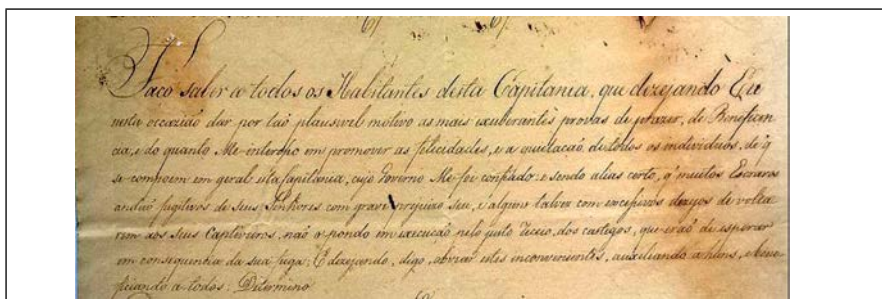 Faço saber a todos os Habitantes desta Capitania, que dezejando Eu
nesta occazião dar por tão plausivel motivo as mais exuberantes provas de prazer, de Beneficen
cia, e do quanto Me interesso em promover as felicidades, e a quietacão de todos os individuos, de q̃
se compoem em geral esta Capitania, cujo Governo Me foi confiado: e sendo alias certo, q̃ muitos Escravos
andão fugitivos de seus Senhores com grave prejuizo seu, e alguns talvez com excessivos dezejos de volta
rem aos seus Captiveiros, não o pondo em execução pelo justo receio dos castigos, que erão de esperar
em consequencia da sua fuga: E dezejando, digo, obviar estes inconvenientes, auxiliando a huns, e bene
ficiando a todos: Determino